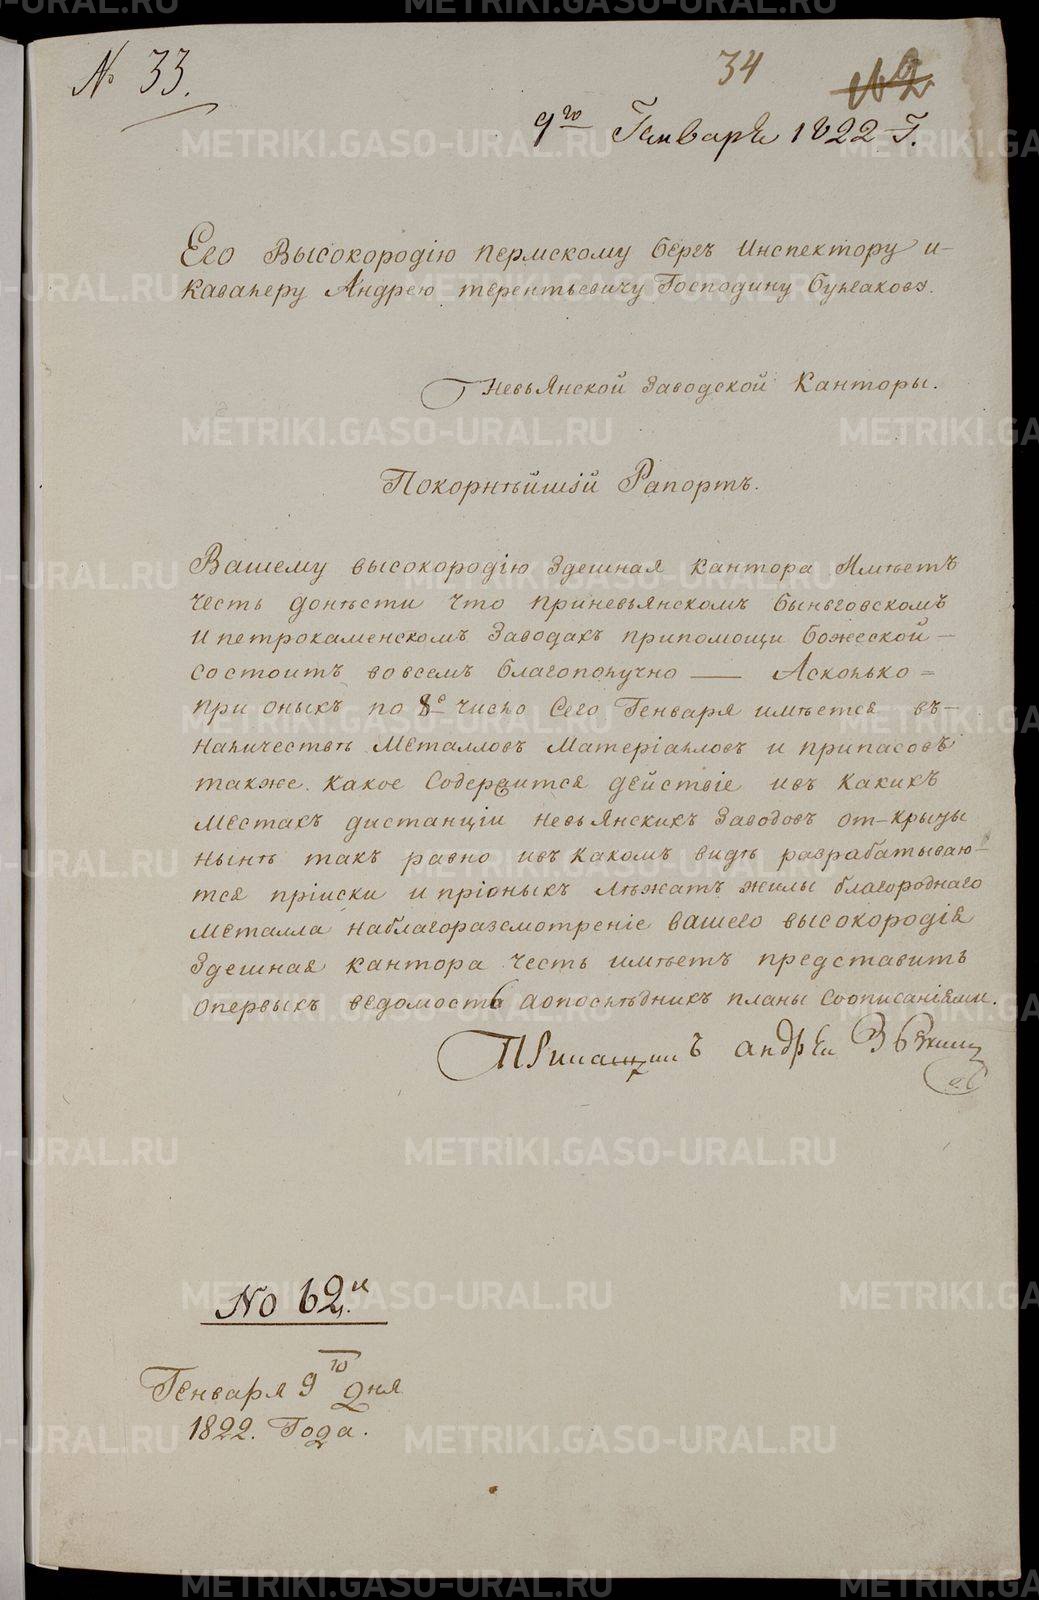 № 33.
34
№ 2
9го Генваря 1822 Г.
Его Высокородію Пермскому Бергъ Инспектору и
Кавалеру Андрею Терентьевичу Господину Булгакову.
Невьянской Заводской Канторы.
Покорнѣйшій Рапортъ.
Вашему высокородію Здешная Кантора Имѣетъ
честь донѣсти что приневьянскомъ Быньговскомъ
И петрокаменскомъ Заводахъ припомощи Божеской
состоитъ вовсемъ благополучно — Асколько
при оныхъ по 8е число Сего Генваря имѣется въ
Наличествѣ Металловъ Матеріаловъ и припасовъ
также какое Содержится дѣйствіе ивъ какихъ
Местахъ дистанціи Невьянскихъ Заводовъ от-крыты
Нынѣ такъ равно ивъ какомъ видѣ разрабатываю-
тся пріиски и пріоныхъ лѣжатъ жилы благороднаго
Металла Наблагоразсмотреніе вашего высокородія
Здешная кантора честь имѣетъ представить
Опервыхъ вѣдомость Апослѣдникъ планы Соописаніями.
Прикащикъ андрѣй
№ 62.й
Генваря 9го дня
1822. Года.
METRIKI.GASO-URAL.RU